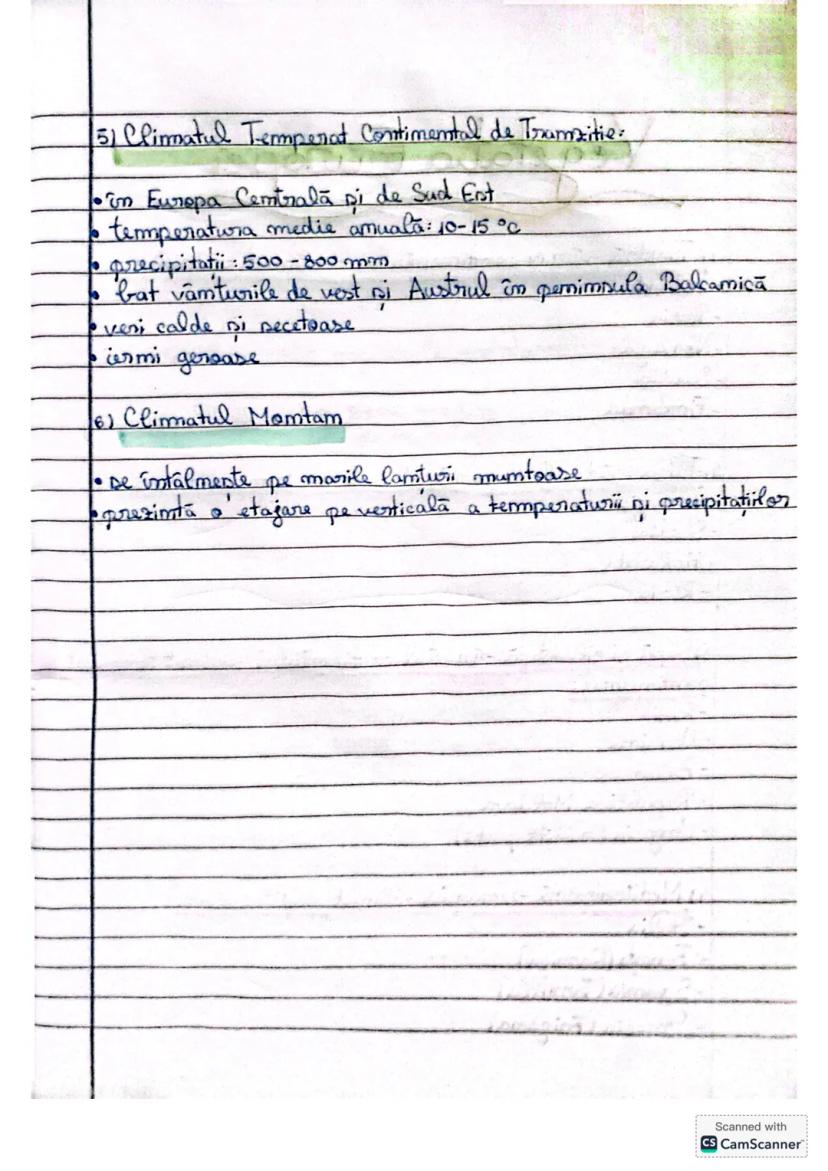 5) Climatul Temperat Continental de Tranziție:
• în Europa Centrală și de Sud Est
• temperatura medie anuală: 10-15 °C
• precipitații: 500-800 mm
• bat vânturile de vest și Austrul în peninsula Balcanică
• veri calde și secetoase
• ierni geroase
6) Climatul Montan
• se întâlnește pe marile lanțuri muntoase
• prezintă o etajare pe verticală a temperaturii și precipitațiilor
Scanned with
CS CamScanner